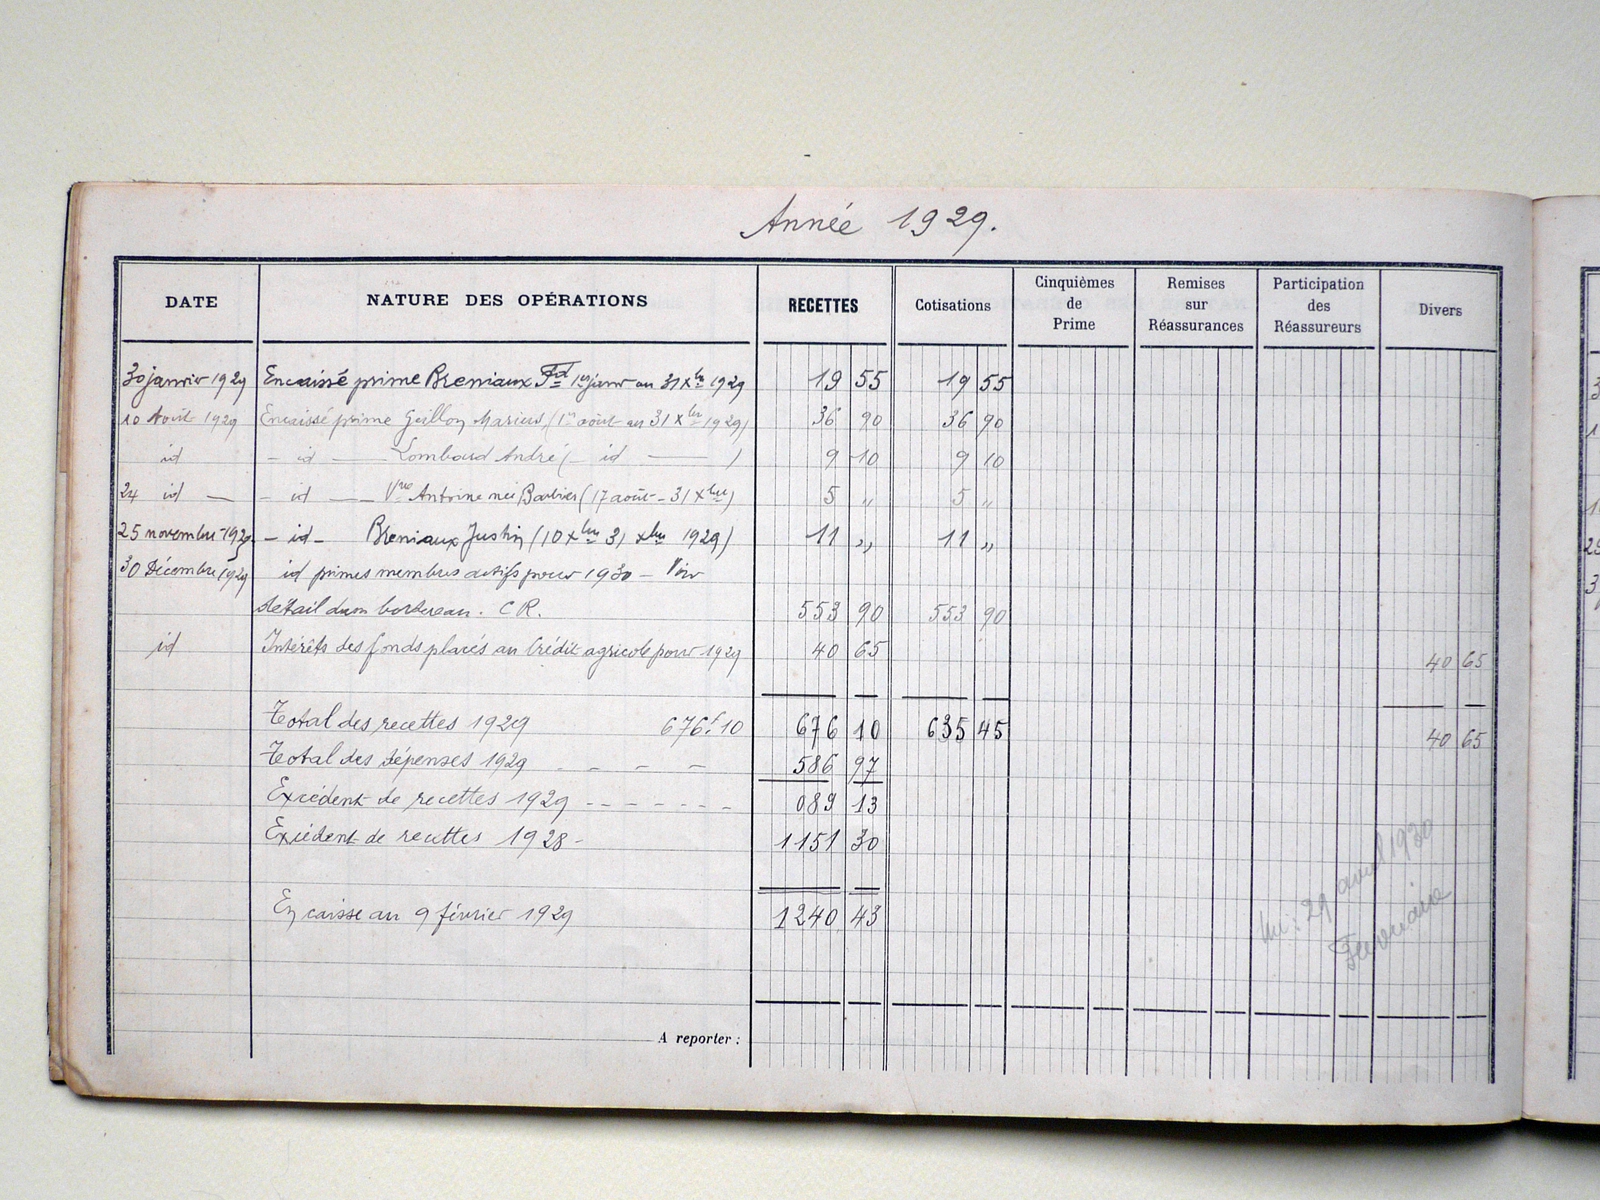 Année 1929.
DATE NATURE DES OPÉRATIONS RECETTES Cotisations Cinquièmes de Prime Remises sur Réassurances Participation des Réassureurs Divers
30 janvier 1929 Encaissé prime Breniaux Fd 1er janv au 31 Xbre 1929 19 55 19 55
10 Août 1929 Encaissé prime Guillon Marius (1er août au 31 Xbre 1929) 36 90 36 90
id - id - Lombard André ( - id - ) 9 10 9 10
24 id - - id - Vve Antoine née Barbier (17 août - 31 Xbre) 5 " 5 "
25 novembre 1929 - id - Breniaux Justin (10 Xbre 31 Xbre 1929) 11 " 11 "
30 Décembre 1929 id primes membres actifs pour 1930 - Voir
détail bordereau. C R. 553 90 553 90
id Intérêts des fonds placés au Crédit agricole pour 1929 40 65 40 65
Total des recettes 1929 676f.10 676 10 635 45 40 65
Total des dépenses 1929 - - - - 586 97
Excédent de recettes 1929 - - - - - - - 089 13
Excédent de recettes 1928 - 1151 30
En caisse au 9 février 1929 1240 43
Vu : 29 avril 1930
A reporter :